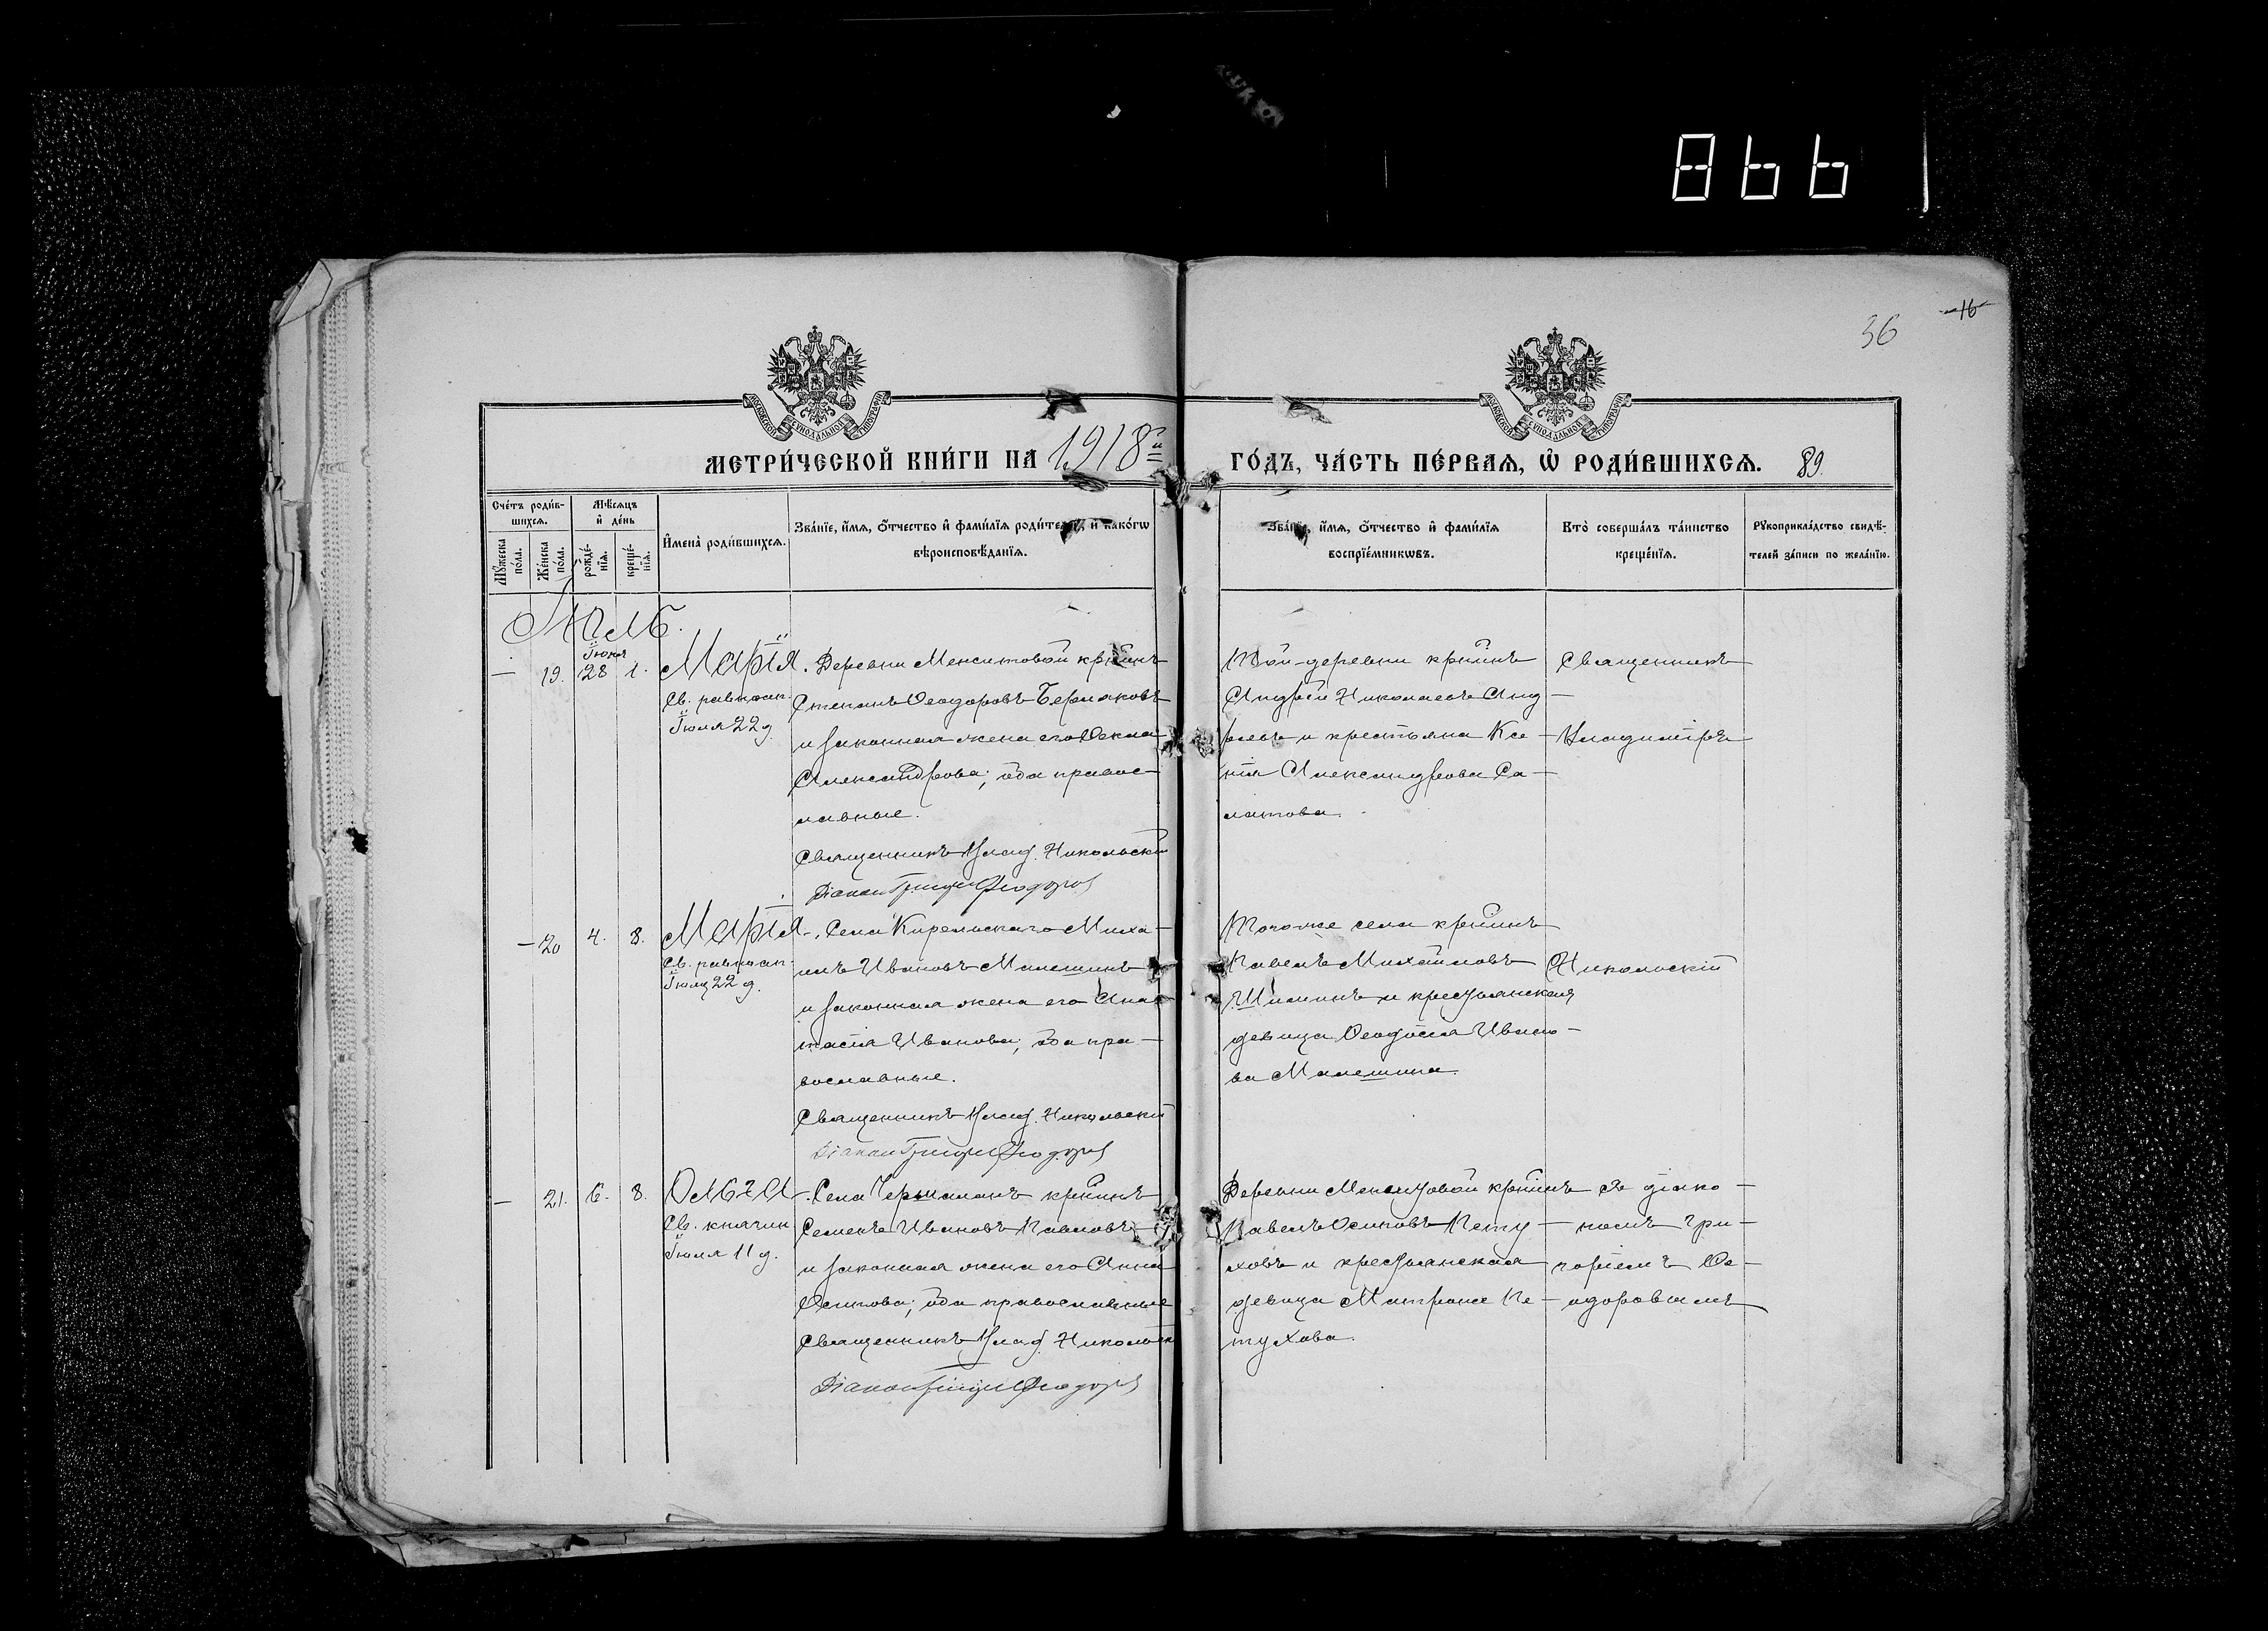 866
36
16
МОСКОВСКОЙ СѴНОДАЛЬНОЙ ТИПОГРАФІИ
МОСКОВСКОЙ СѴНОДАЛЬНОЙ ТИПОГРАФІИ
МЕТРИ́ЧЕСКОЙ КНИ́ГИ НА 1918й
ГО́ДЪ, ЧА́СТЬ ПЕ́РВАѦ, Ѽ РОДИ́ВШИХСѦ. 89.
Сче́тъ роди́в-
шихсѧ.
Мѣ́сѧцъ
и҆ де́нь
Мꙋ́жеска
по́ла.
Же́нска
по́ла.
рожде́-
нїѧ.
креще́-
нїѧ.
И҆мена̀ роди́вшихсѧ.
Зва́нїе, и҆́мѧ, ѻ҆́тчество и҆ фами́лїѧ роди́телей, и҆ како́гѡ
вѣроисповѣ́данїѧ.
Зва́нїе, и҆́мѧ, ѻ҆́тчество и҆ фами́лїѧ
воспрїе́мникѡвъ.
Кто̀ соверша́лъ та́инство
креще́нїѧ.
Рꙋкоприкла́дство свидѣ́-
телей за́писи по жела́нїю.
Іюль.
Іюня
— 19. 28 1. Марія.
Св. равноап.
Іюля 22 д.
Деревни Менситовой кр-инъ
Степанъ Ѳеодоровъ Бермаковъ
и законная жена его Ѳекла
Александрова; оба правос-
лавные.
Священникъ Влад. Никольскій
Діаконъ Григорій Ѳеодоров
Той-деревни кр-инъ
Андрей Николаевъ Анд-
реевъ и крестьянка Ксе-
нія Александрова Са-
латова.
Священникъ
Владиміръ
— 20 4. 8. Марія.
Св. равноап.
Іюля 22 д.
Села Кирельскаго Миха-
илъ Ивановъ Малешинъ
и законная жена его Анас-
тасія Иванова; оба пра-
вославные.
Священникъ Влад. Никольскій
Діаконъ Григорій Ѳеодоров
Того-же села кр-инъ
Павелъ Михайловъ
Шилинъ и крестьянская
девица Ѳеодосія Ивано-
ва Малешина.
Никольскій
— 21. 6. 8. Ольга.
Св. княгин
Іюля 11 д.
Села кр-инъ
Семенъ Ивановъ Павловъ
и законная жена его Анна
Осипова; оба православные
Священникъ Влад. Никольск
Діаконъ Григорій Ѳеодоров
Деревни Менситовой кр-инъ
Павелъ Осиповъ Пету-
ховъ и крестьянская
девица Матрона Пе-
тухова.
съ діако-
номъ Гри-
горіемъ Ѳе-
одоровымъ